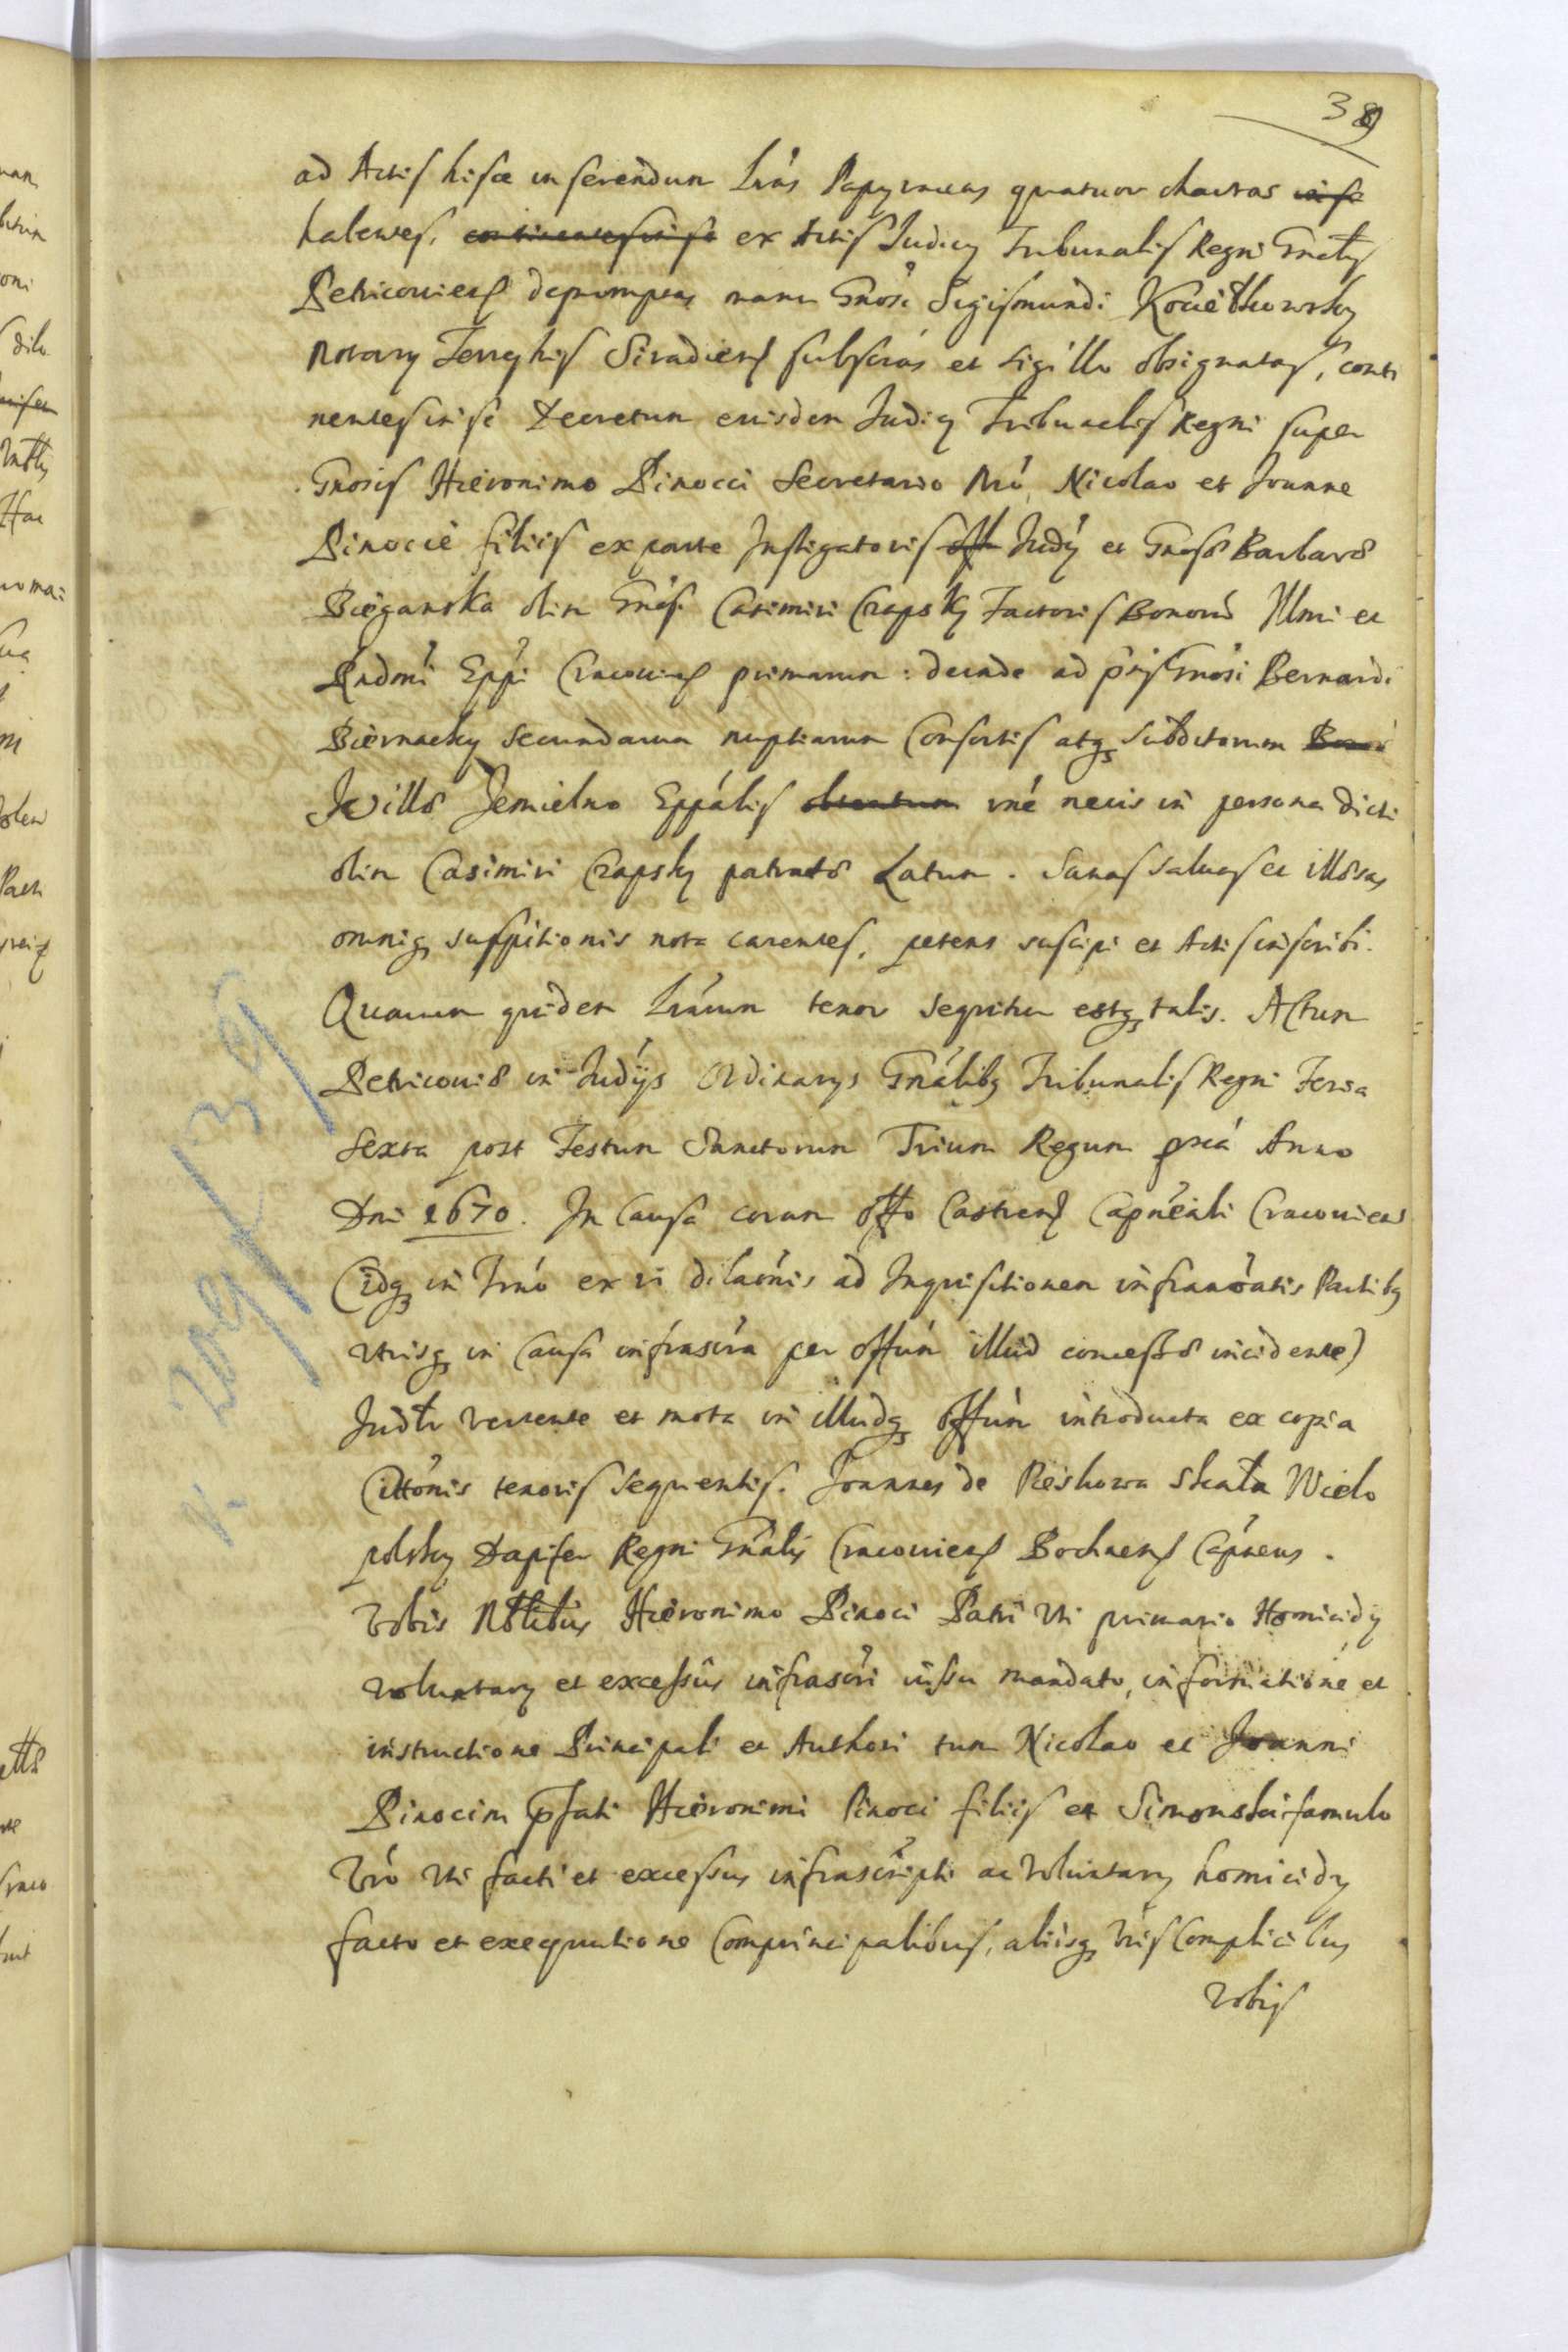 39
ad Actis hisce inserendum Lrás Papyraceas quatuor chartas in se
habentes, continentes in se ex Actis Judicij Tribunalis Regni Gnális
Petricouiens depromptas manu Gnósi Sigismundi Kociełkowsky
Notarij Terrgris Siradiens subscrás et sigillo obsignatas, conti
nentes in se Decretum eiusdem Judicij Tribunalis Regni super
Gnosis Hieronimo Pinocci Secretario Nró, Nicolao et Joanne
Pinocie filiis ex parte Instigatoris off Judÿ et Gnosæ Barbaræ
Bieganska olim Gnósi Casimiri Czapsky Factoris Bonorú Illmi et
Rndmi Eppi Cracouiens primarum: deinde ad pns Gnósi Bernardi
Biernacky secundarum nuptiarum Consortis atq subditorum Bonorú
Villæ Jemielno Eppális obtentum rné necis in persona dicti
olim Casimiri Czapsky patratæ Latum. Sanas saluas et illæsas
omniq suspitionis nota carentes, petens suscipi et Actis inscribi.
Quarum quidem Lrárum tenor sequitur estq talis. Actum
Petricouiæ in Judÿs Ordinarys Gnálibq Tribunalis Regni Feria
Sexta post Festum Sanctorum Trium Regum pxiá Anno
Dni 1670. In Causa coram Offo Castrens Capneáli Cracouiens
(idq in Trnó ex vi dilaónis ad Inquisitionem infranoátis Partibq
utrisq in Causa infrascra per Offún illud concessæ incidente)
Judtr vertente et mota in illudq Offún introducta ex copia
Cittónis tenoris sequentis. Joannes de Pieskowa Skała Wielo
polsky Dapifer Regni Gnális Cracouiens Bochnens Cápneus.
Vobis Nblibus Hieronimo Pinoci Patri uti primario Homicidij
voluntarij et excessus infrascri iussu mandato, informatióne et
instructione Principali et Authori tum Nicolao et Joanni
Pinocim pfati Hieronimi Pinoci filiis et Simonski famulo
Vró uti facti et excessus infrascripti ac voluntarij homicidij
facto et exequutione Comprincipalibus, aliisq Vris Complicibus
Vobis